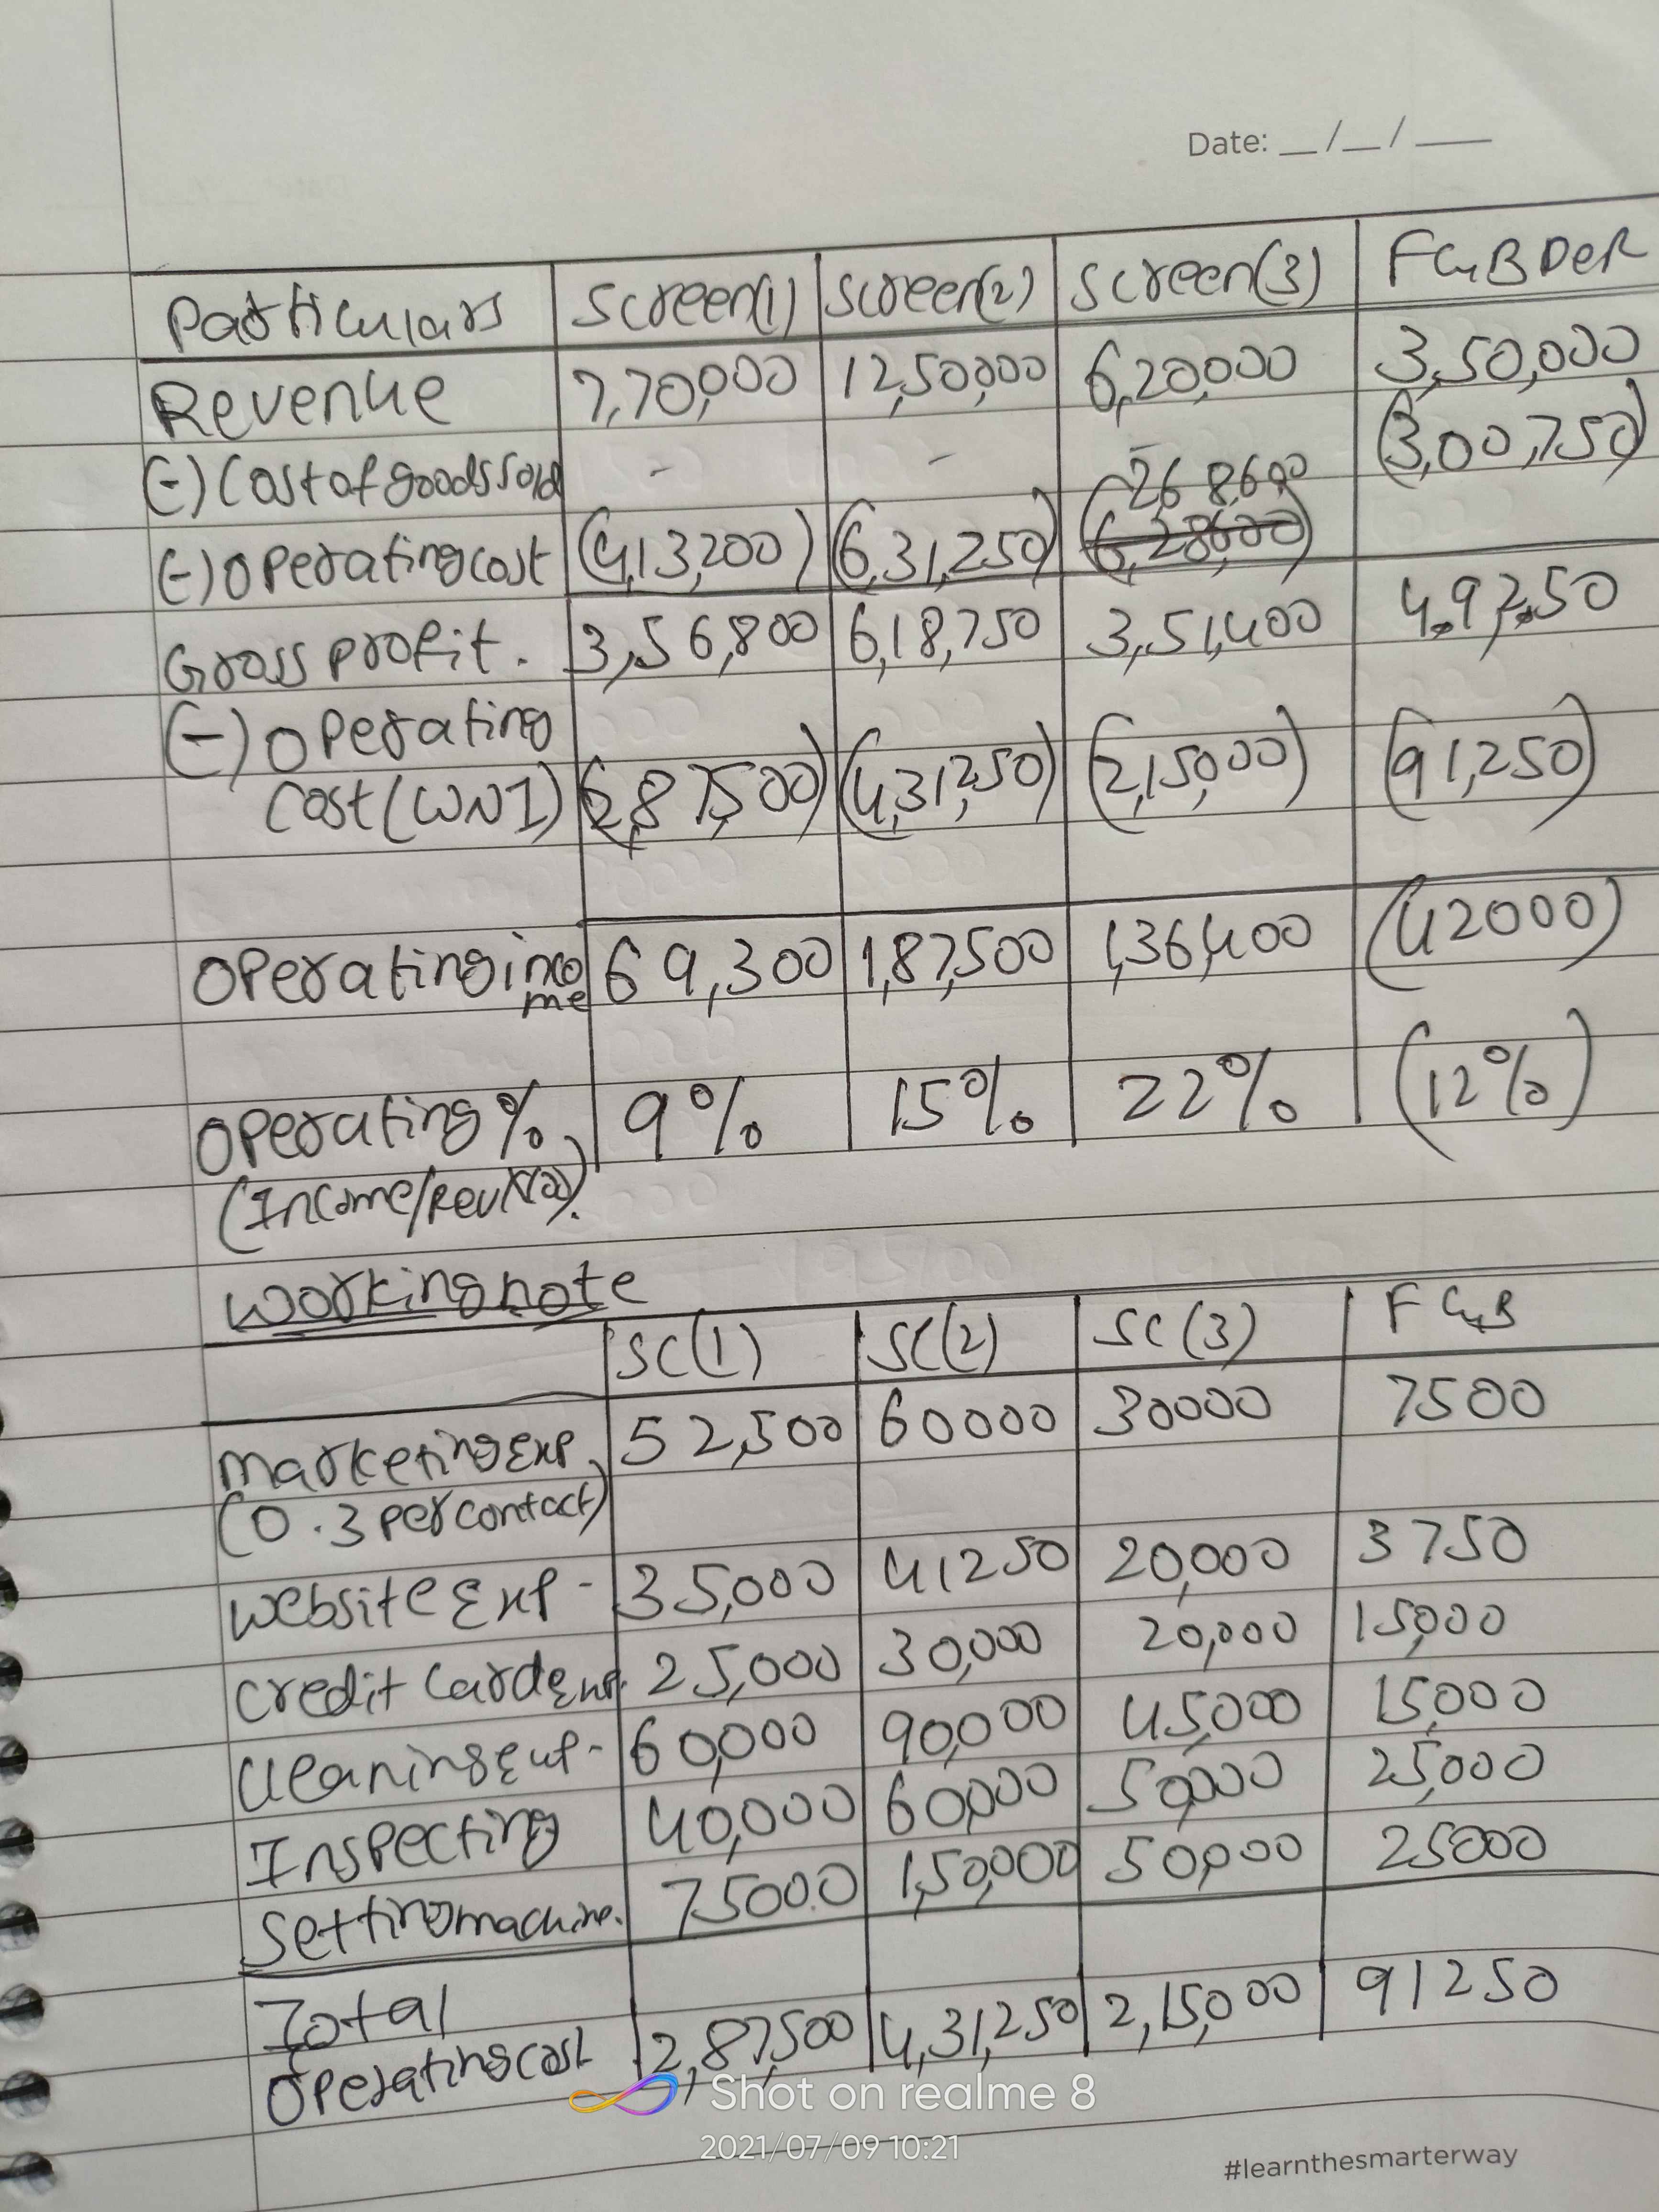 Date: __/__/____
Particulars Screen(1) Screen(2) Screen(3) F&B Dep
Revenue 7,70,000 12,50,000 6,20,000 3,50,000
(-) Cost of goods sold - - - (3,00,750)
(-) Operating cost (4,13,200) (6,31,250) (268,600)
Gross profit. 3,56,800 6,18,750 3,51,400 4,9,250
(-) Operating
cost (WN1) (2,87,500) (4,31,250) (2,15,000) (91,250)
Operating inco
me 69,300 1,87,500 1,36,400 (42000)
Operating % 9% 15% 22% (12%)
Working note
SC(1) SC(2) SC(3) F&B
Marketing Exp. 52,500 60000 30000 7500
(0.3 per contact)
Website Exp - 35,000 41250 20,000 3750
Credit Card Exp. 25,000 30,000 20,000 15,000
Cleaning Exp- 60,000 90,000 45,000 15,000
Inspecting 40,000 60,000 50,000 25,000
Setting machine. 75000 1,50,000 50,000 25000
Total
Operating cost 2,87,500 4,31,250 2,15,000 91250
Shot on realme 8
2021/07/09 10:21
#learnthesmarterway